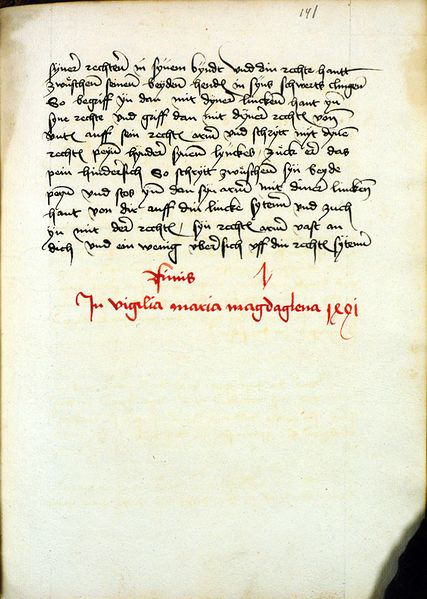 141
syner rechten in synem bindt vnd din rechte hantt
zwüschen seinen beyden henden in syns schwerts clingen
So begriff yn dan mit dyner lincken hant yn
syne rechte vnd griff dan mit dyner rechten von
vnten auff sein rechten arm vnd schrytt mit dyne
rechten peyn hynder synen lynckes zück er das
pein hindersich So schrytt zwüschen syn beyde
peyn vnd stos yn dan syn arm mit diner lincken
hant von dir auff din lincke sytenn vnd zuch
yn mit der rechten / syn rechten arm vast an
dich vnd ein wenig vbersich vff din rechten sytenn
Finis
In vigilia maria magdaglena